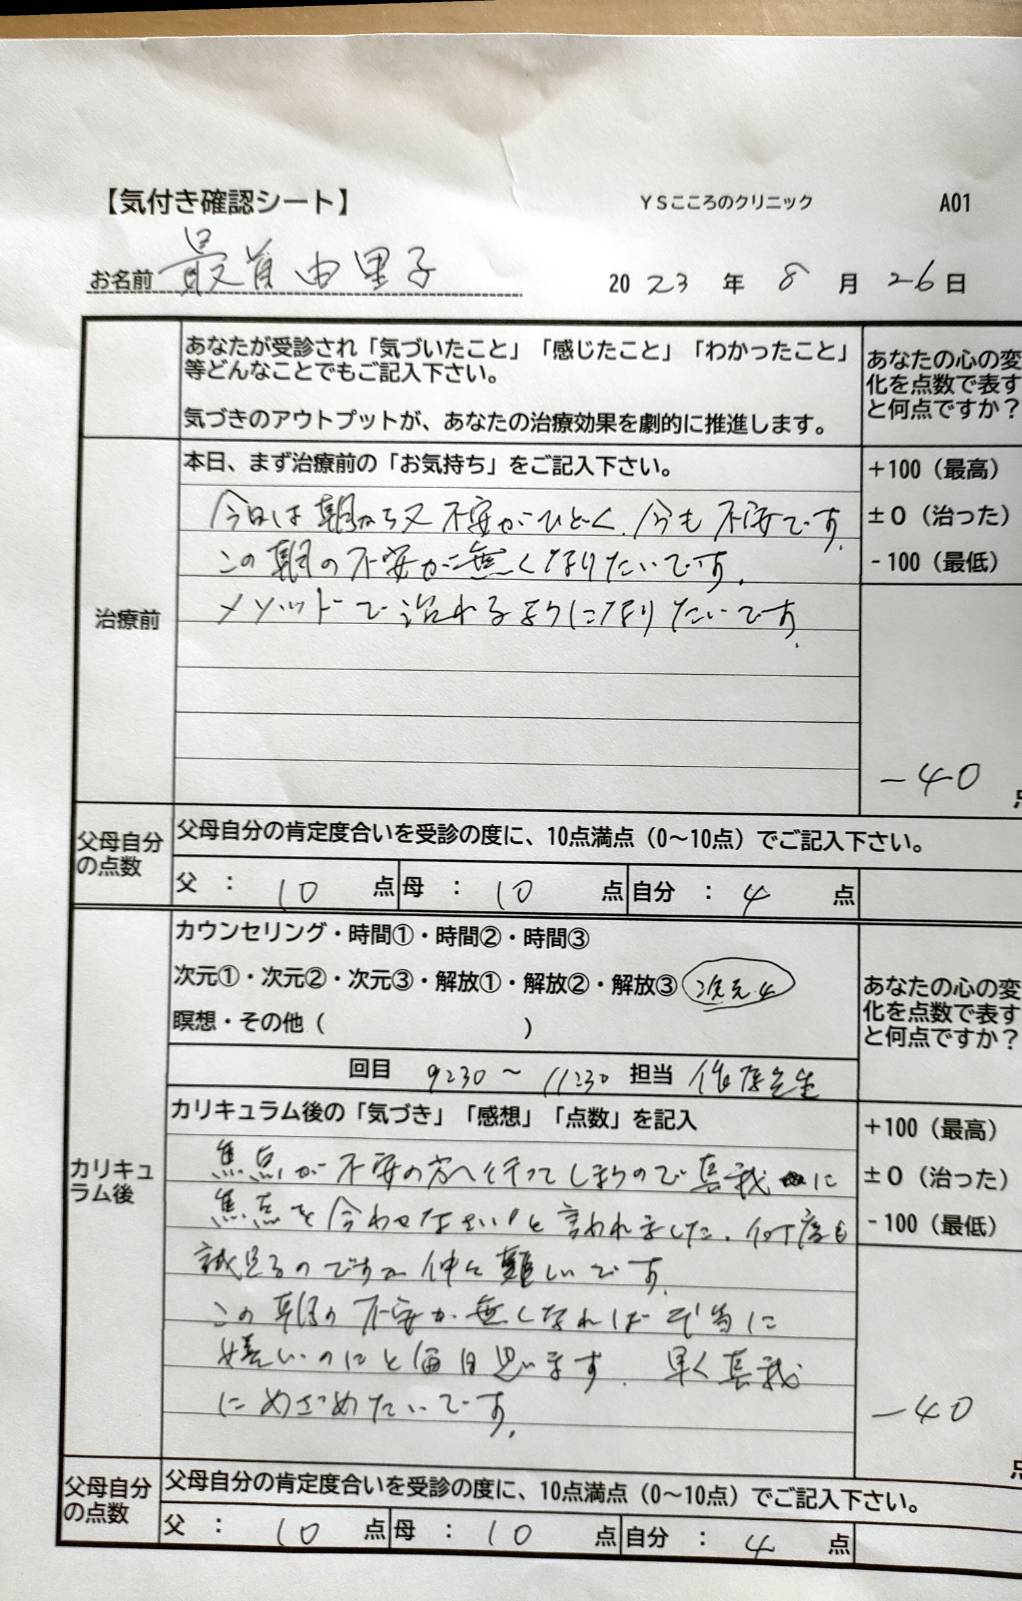 【気付き確認シート】
YSこころのクリニック
A01
お名前 最首由里子
2023年 8月 26日
あなたが受診され「気づいたこと」「感じたこと」「わかったこと」
等どんなことでもご記入下さい。
気づきのアウトプットが、あなたの治療効果を劇的に推進します。
あなたの心の変
化を点数で表す
と何点ですか？
治療前
本日、まず治療前の「お気持ち」をご記入下さい。
今日は朝から又不安がひどく、今も不安です。
この朝の不安が無くなりたいです。
メソッドで治れるようになりたいです。
+100（最高）
±0（治った）
-100（最低）
-40
点
父母自分
の点数
父母自分の肯定度合いを受診の度に、10点満点（0〜10点）でご記入下さい。
父 ： 10 点 母 ： 10 点 自分 ： 4 点
カリキュ
ラム後
カウンセリング・時間①・時間②・時間③
次元①・次元②・次元③・解放①・解放②・解放③ 次元4
瞑想・その他（ ）
回目 9:30 〜 11:30 担当 佐原先生
あなたの心の変
化を点数で表す
と何点ですか？
カリキュラム後の「気づき」「感想」「点数」を記入
焦点が不安の方へ行ってしまうので真我に
焦点を合わせなさいと言われました。何度も
試見るのですが仲々難しいです。
この朝の不安が無くなれば本当に
嬉しいのにと毎日思います。早く真我
にめざめたいです。
+100（最高）
±0（治った）
-100（最低）
-40
点
父母自分
の点数
父母自分の肯定度合いを受診の度に、10点満点（0〜10点）でご記入下さい。
父 ： 10 点 母 ： 10 点 自分 ： 4 点